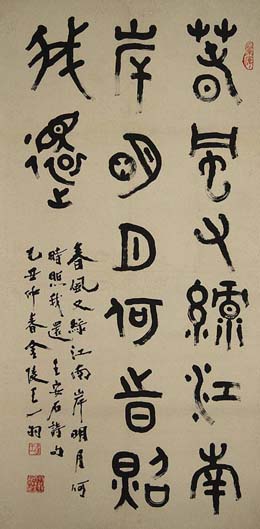 春風又綠江南
岸明月何時照
我還
春風又綠江南岸明月何
時照我還王安石詩句
乙丑仲春金陵王一羽